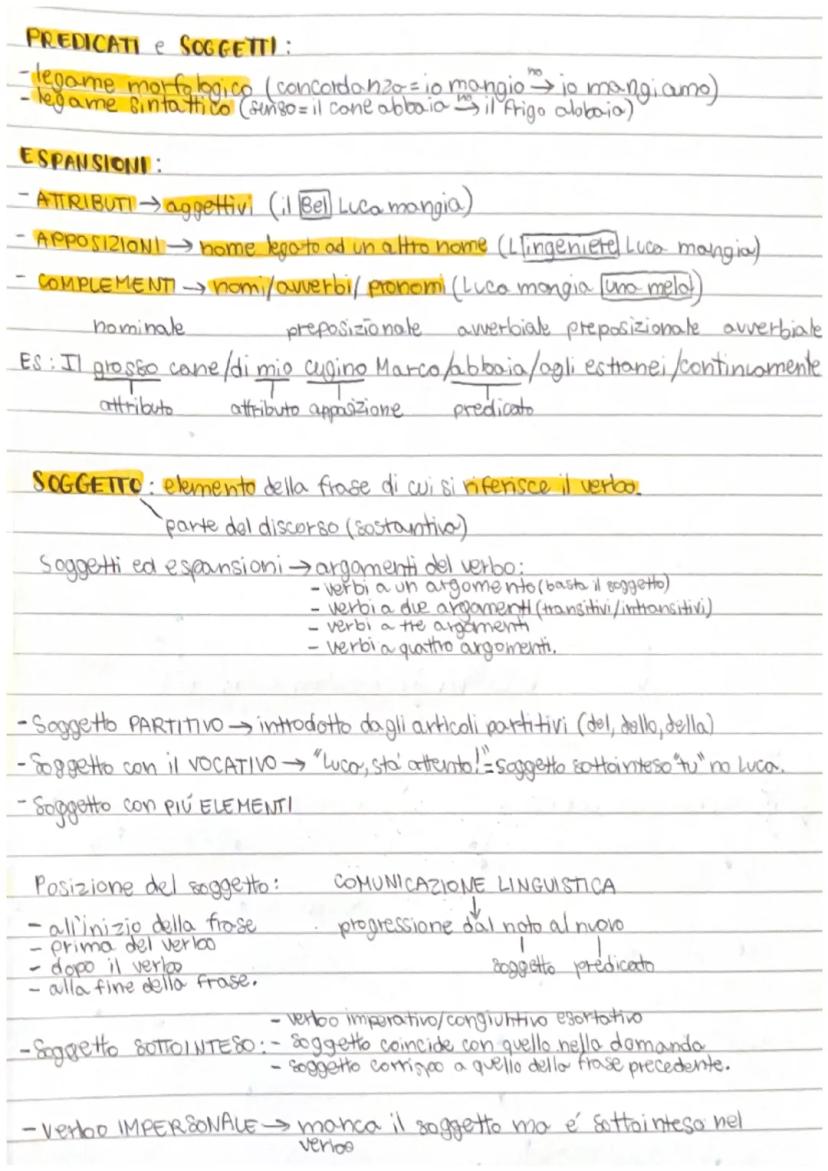 PREDICATI e SOGGETTI:
- legame morfologico (concordanza = io mangio no→ io mangiamo)
- legame sintattico (senso = il cane abbaia no→ il frigo abbaia)
ESPANSIONI:
- ATTRIBUTI → aggettivi (il Bel Luca mangia)
- APPOSIZIONI → nome legato ad un altro nome (L'ingeniere Luca mangia)
- COMPLEMENTI → nomi/avverbi/pronomi (Luca mangia una mela)
nominale preposizionale avverbiale preposizionale avverbiale
ES: Il grosso cane/di mio cugino Marco/abbaia/agli estranei/continuamente
attributo attributo apposizione predicato
SOGGETTO: elemento della frase di cui si riferisce il verbo.
parte del discorso (sostantivo)
Soggetti ed espansioni → argomenti del verbo:
- verbi a un argomento (basta il soggetto)
- verbi a due argomenti (transitivi/intransitivi)
- verbi a tre argomenti
- verbi a quattro argomenti.
- Soggetto PARTITIVO → introdotto dagli articoli partitivi (del, dello, della)
- Soggetto con il VOCATIVO → "Luca, sta' attento!" = soggetto sottointeso "tu" no Luca.
- Soggetto con PIÚ ELEMENTI
Posizione del soggetto: COMUNICAZIONE LINGUISTICA
- all'inizio della frase progressione dal noto al nuovo
- prima del verbo
- dopo il verbo soggetto predicato
- alla fine della frase.
- verbo imperativo/congiuntivo esortativo
- Soggetto SOTTOINTESO: - soggetto coincide con quello nella domanda
- soggetto corrispo a quello della frase precedente.
- verbo IMPERSONALE → manca il soggetto ma é sottointeso nel
verbo